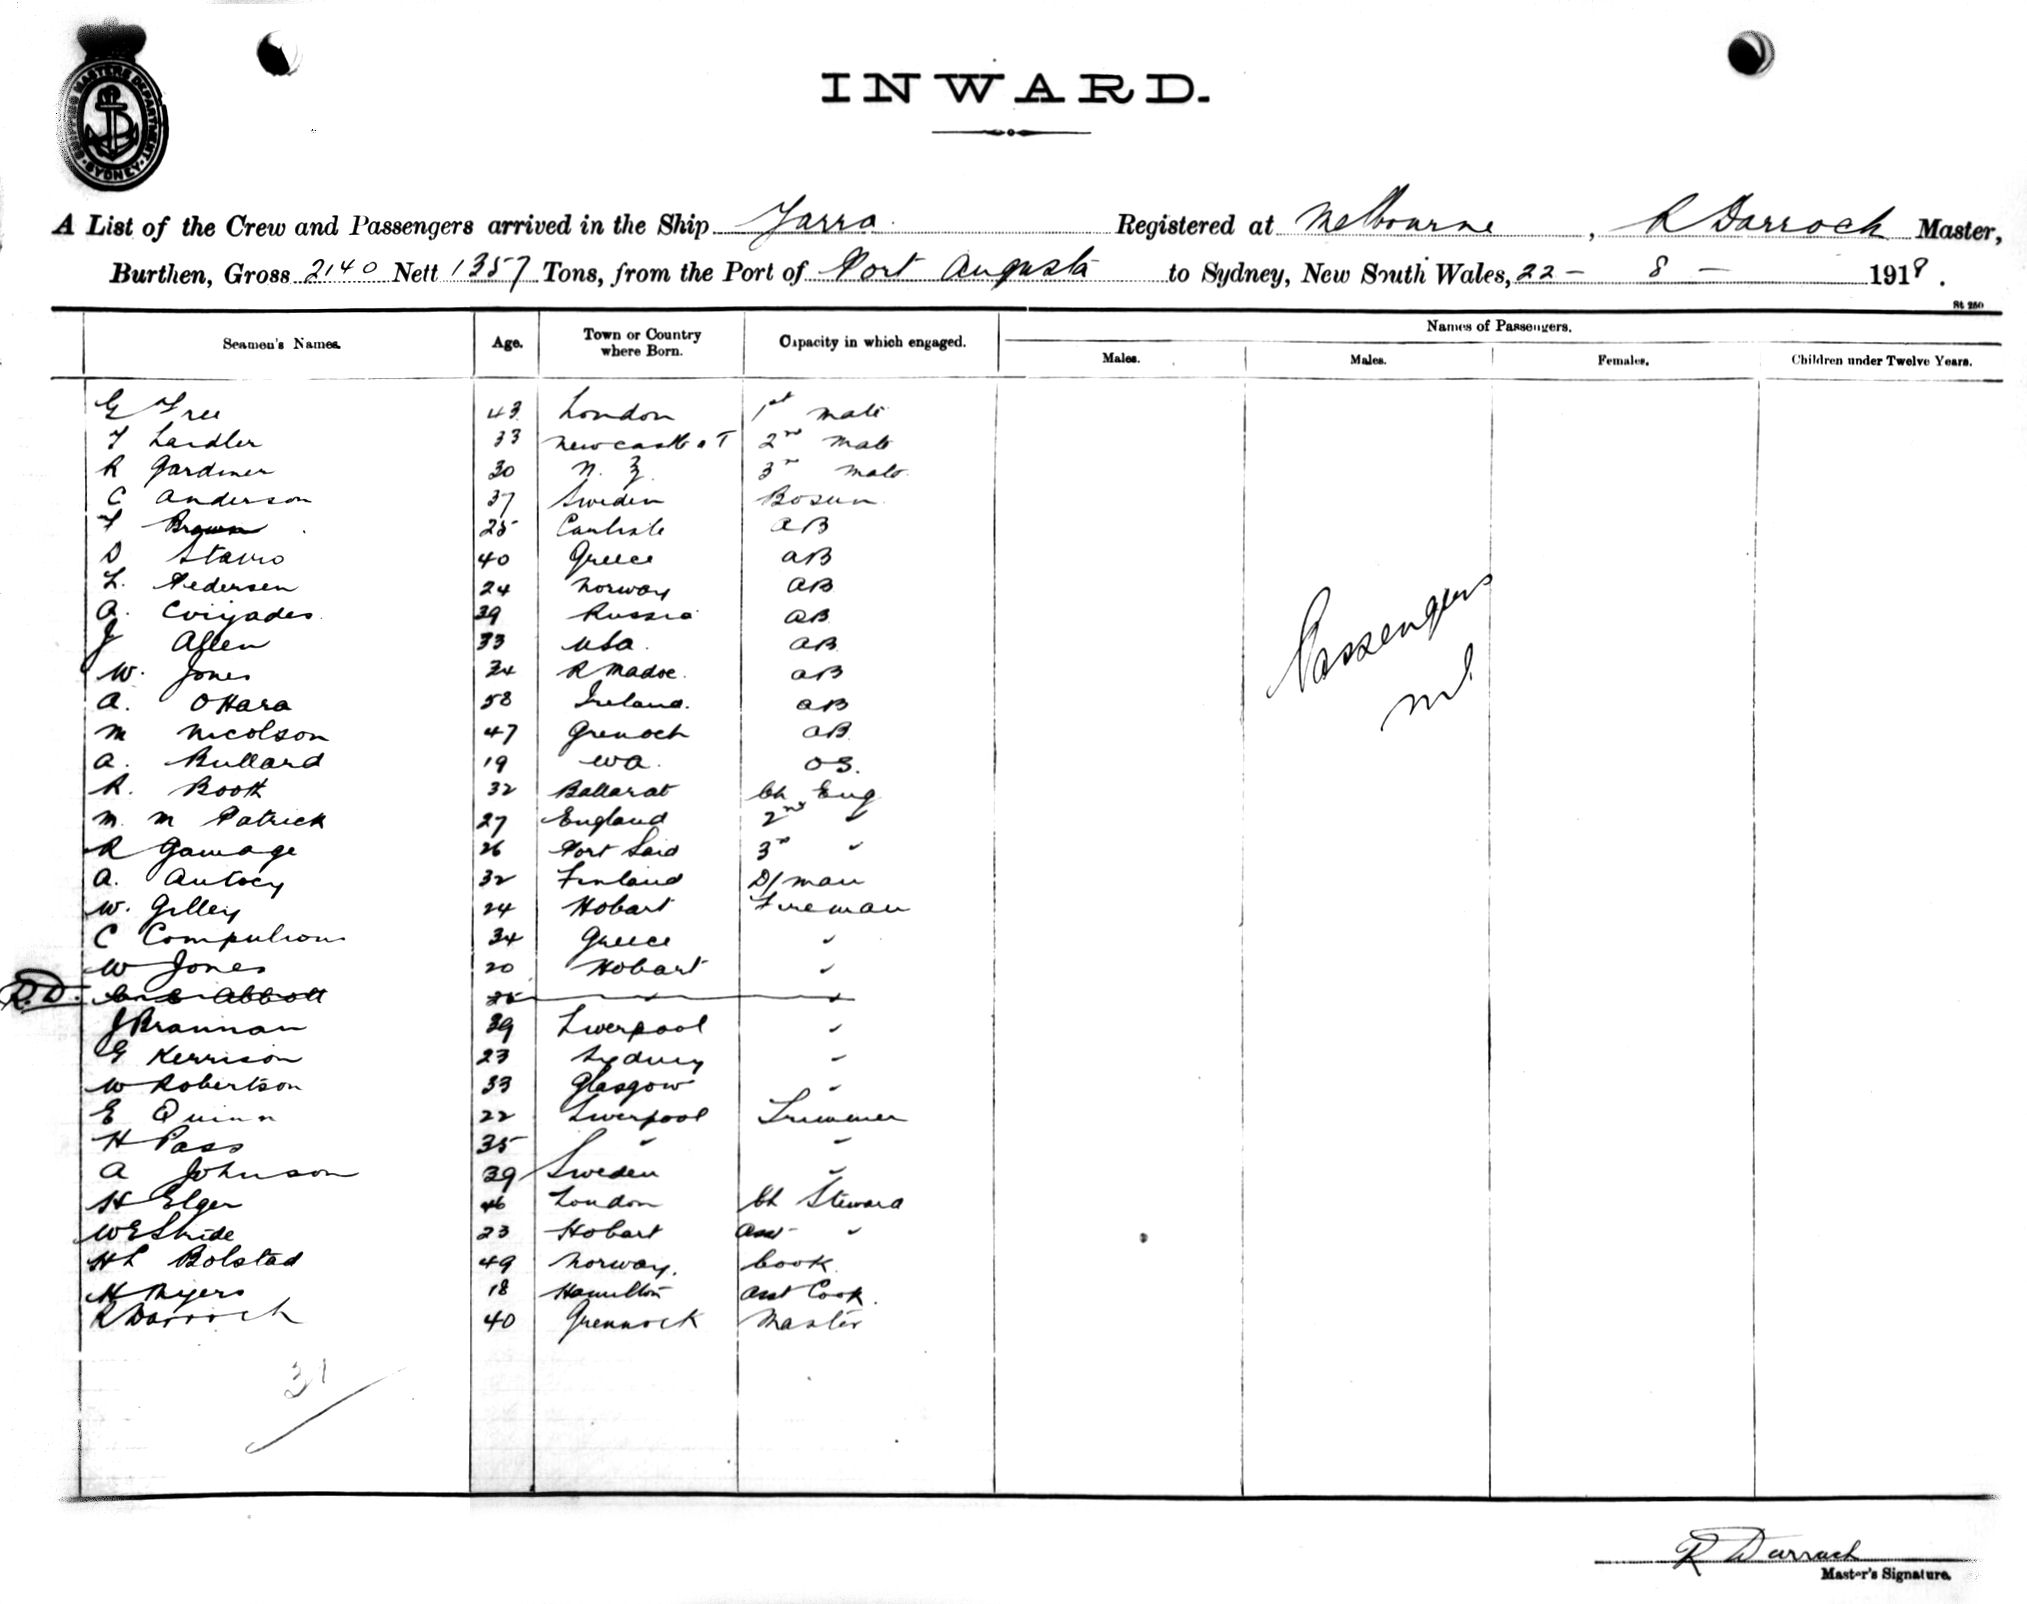 SHIPPING MASTERS DEPARTMENT SYDNEY
INWARD.
A List of the Crew and Passengers arrived in the Ship Yarra Registered at Melbourne, R Darroch Master,
Burthen, Gross 2140 Nett 1357 Tons, from the Port of Port Augusta to Sydney, New South Wales, 22 - 8 - 1918.
St 250
Seamen's Names. Age. Town or Country where Born. Capacity in which engaged. Names of Passengers.
Males. Males. Females. Children under Twelve Years.
G Free 43 London 1st Mate
T Laidler 33 Newcastle o T 2nd Mate
R Gardiner 30 N. Z. 3rd Mate
C Anderson 37 Sweden Bosun
F Brown 25 Carlisle AB
D Stavro 40 Greece AB
L. Pedersen 24 Norway AB
A. 39 Russia AB
J Allen 33 USA. AB
W. Jones 34 P Madoc. AB
A. OHara 58 Ireland. AB
M Nicolson 47 Grenock AB
A. Bullard 19 WA. OS.
R. Booth 32 Ballarat Ch Eng
M. M Patrick 27 England 2nd "
R Gamage 26 Port Said 3rd "
A. 32 Finland D/man
W. Gilley 24 Hobart Fireman
C 34 Greece "
W Jones 20 Hobart "
R.D. Abbott 25 " "
J Brannan 39 Liverpool "
G Kerrison 23 Sydney "
W Robertson 33 Glasgow "
E Quinn 22 Liverpool Trimmer
H Pass 35 " "
A Johnson 39 Sweden "
H Elger 46 London Ch Steward
W E Shide 23 Hobart Asst "
H L Bolstad 49 Norway. Cook
H Myers 18 Hamilton Asst Cook.
R Darroch 40 Grennock Master
Passengers
nil
31
R Darroch
Master's Signature.